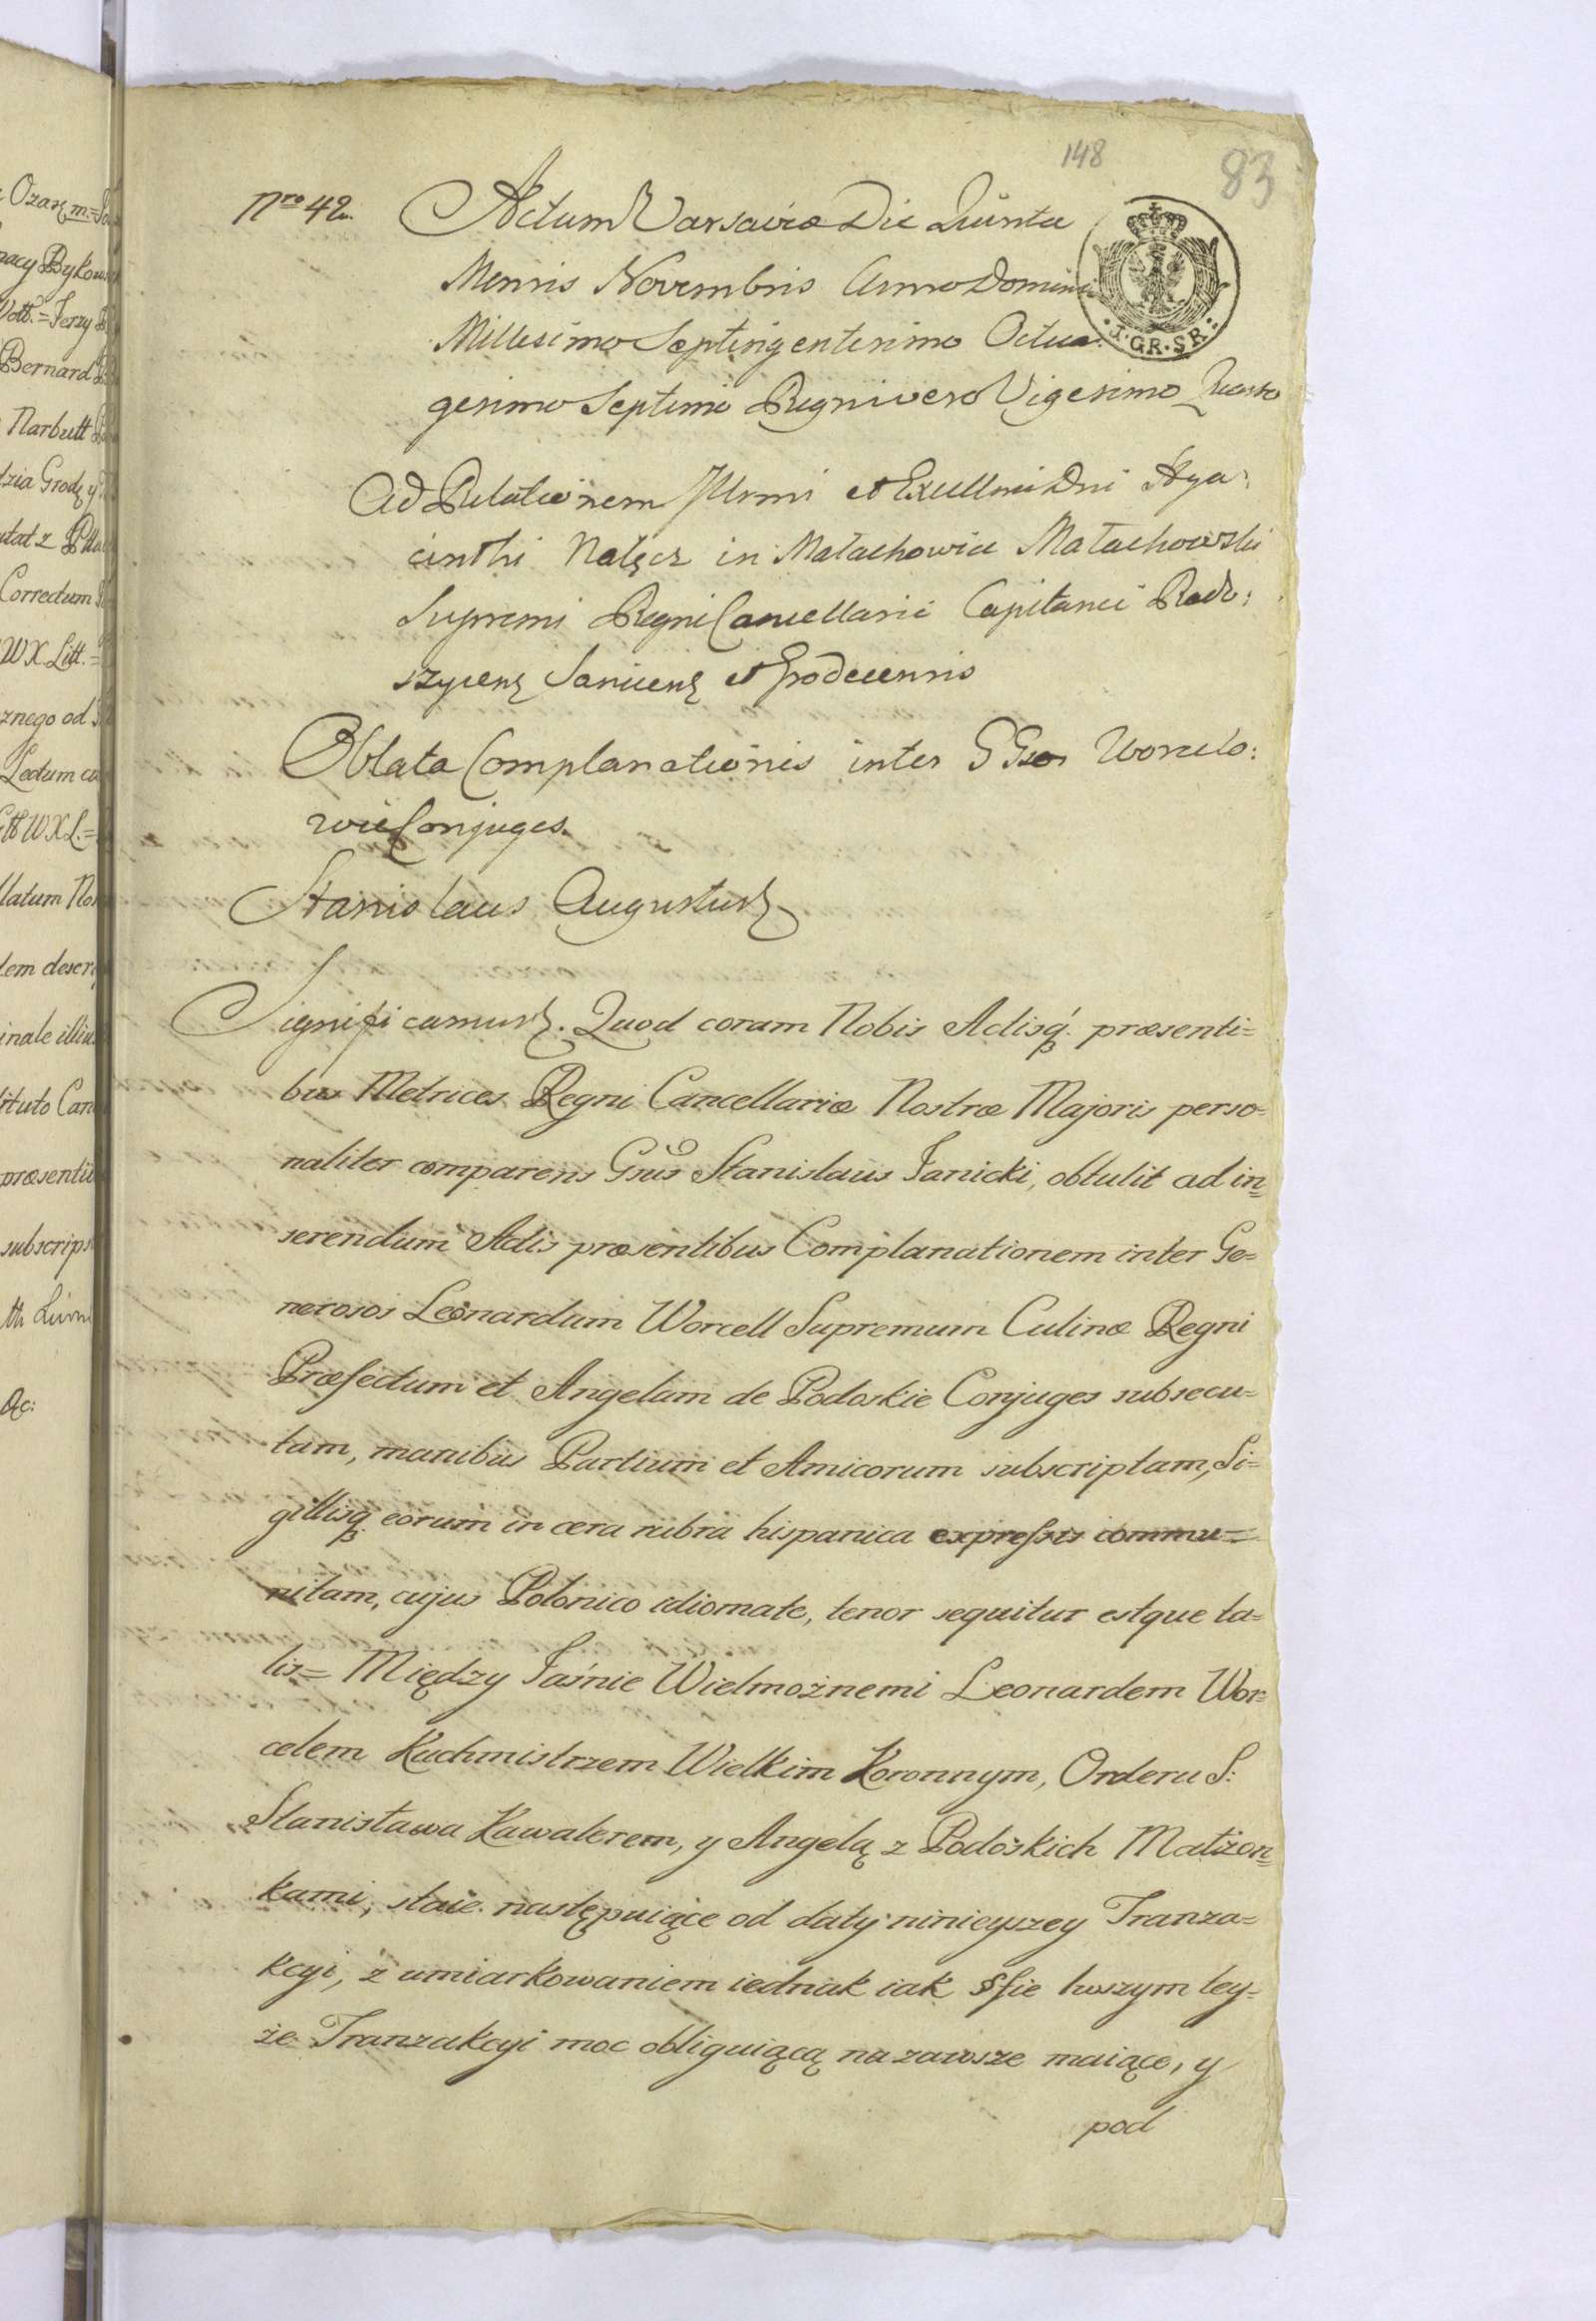 148
83
Nro 42.
Actum Varsaviæ Die Quinta
Mensis Novembris Anno Domini
Millesimo Septingentesimo Octua:
gesimo Septimo Regni vero Vigesimo Quarto
I. GR. SR.
Ad Relationem Illrmi et Excellmi Dni Hya:
cinthi Nałęcz in Małachowice Małachowski
Supremi Regni Cancellarii Capitanei Rado:
szycens Sanicens et Grodecensis
Oblata Complanationis inter GGsos Worcelo:
wie Conjuges.
Stanislaus Augustus
Significamus. Quod coram Nobis Actisq. præsenti=
bus Metrices Regni Cancellariæ Nostræ Majoris perso=
naliter comparens Gsus Stanislaus Janicki, obtulit ad in=
serendum Actis præsentibus Complanationem inter Ge=
nerosos Leonardum Worcell Supremum Culinæ Regni
Præfectum et Angelam de Podoskie Conjuges subsecu=
tam, manibus Partium et Amicorum subscriptam, Si=
gillisq eorum in cera rubra hispanica expressis commu=
nitam, cujus Polonico idiomate, tenor sequitur estque ta=
lis= Między Jaśnie Wielmożnemi Leonardem Wor=
celem Kuchmistrzem Wielkim Koronnym, Orderu S:
Stanisława Kawalerem, y Angelą z Podoskich Małżon=
kami, staie następuiące od daty ninieyszey Tranza=
kcyi, z umiarkowaniem iednak iak §fie tey=
że Tranzakcyi moc obliguiącą na zawsze maiące, y
pod
Ozarz m.=
nacy Bykow
Vott.= Jerzy
Bernard
Narbutt
dzia Grodz y
utat z
Correctum
WX. Litt.=
znego od
Lectum
WXL.=
llatum
dem descri
inale illiu
tituto Can
præsentiu
subscrips